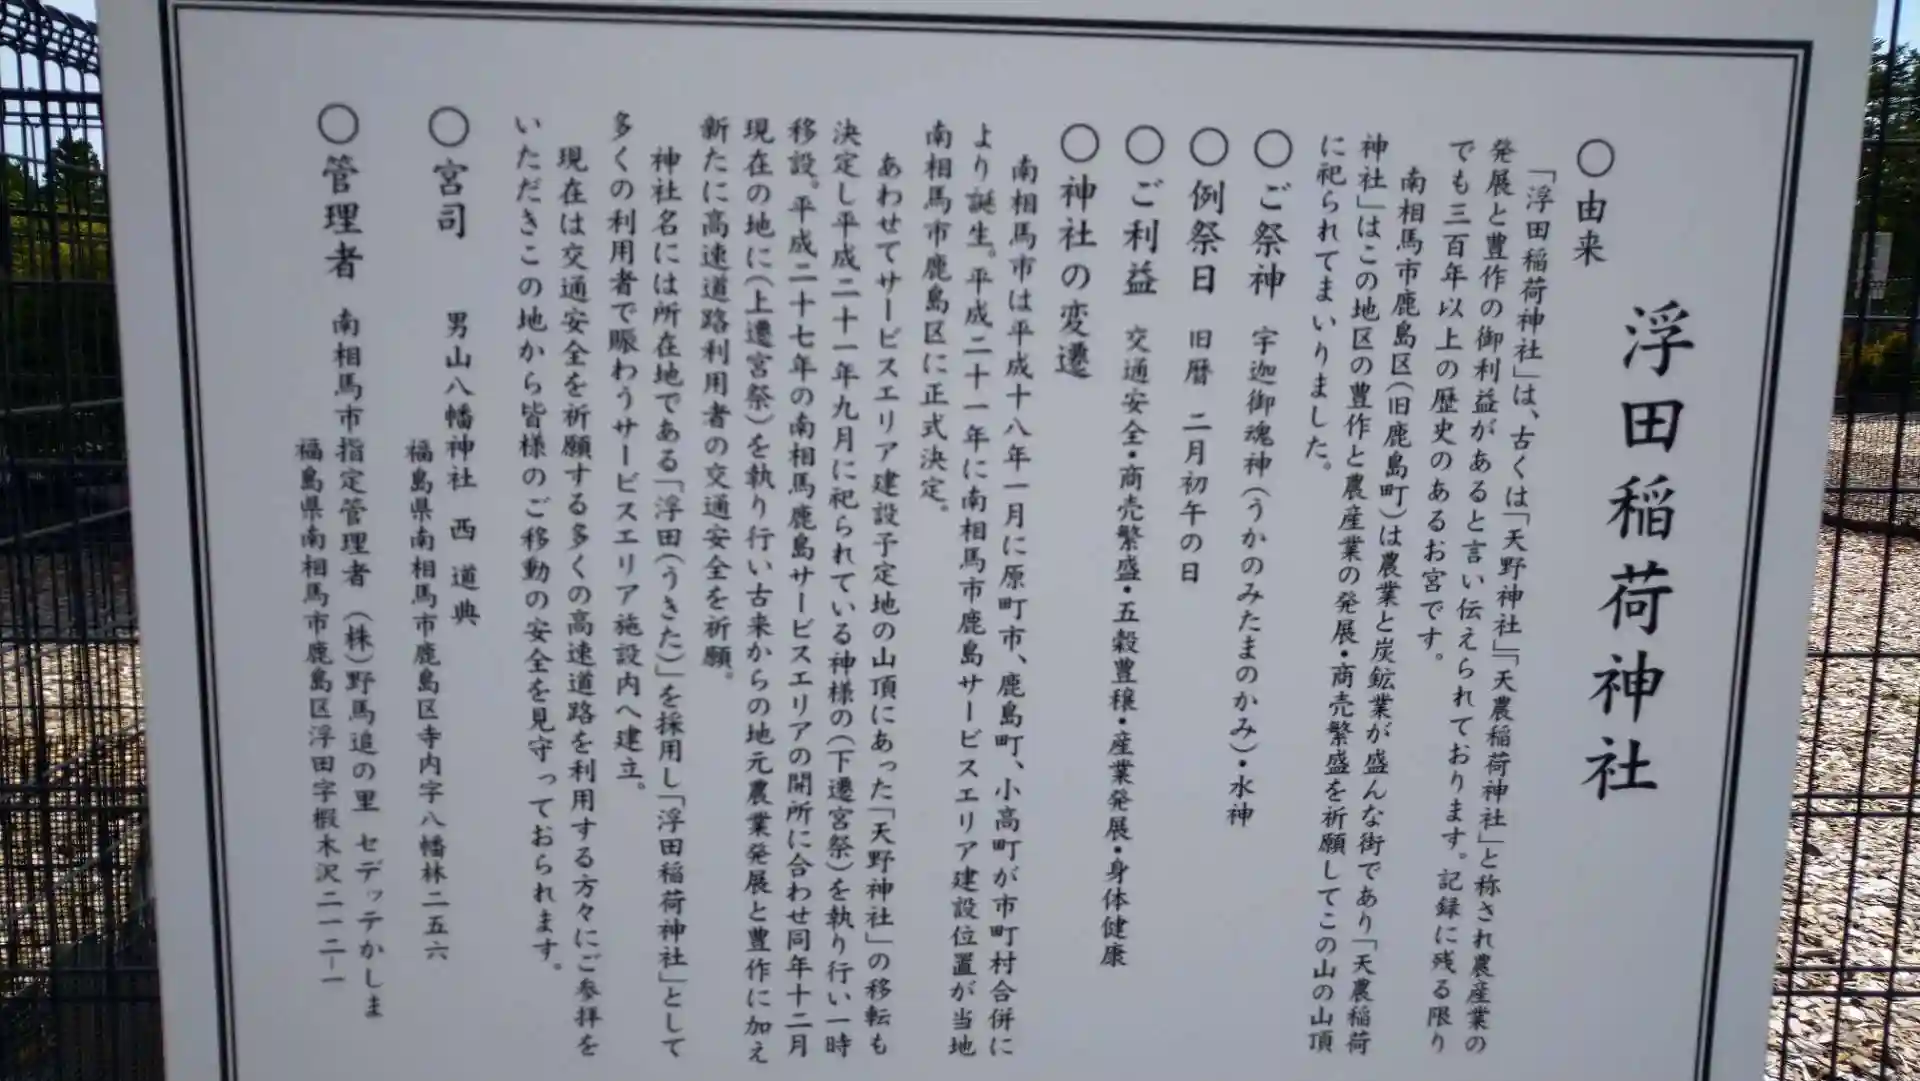 浮田稲荷神社
○由来
「浮田稲荷神社」は、古くは「天野神社」「天農稲荷神社」と称され農産業の
発展と豊作の御利益があると言い伝えられております。記録に残る限り
でも三百年以上の歴史のあるお宮です。
南相馬市鹿島区(旧鹿島町)は農業と炭鉱業が盛んな街であり「天農稲荷
神社」はこの地区の豊作と農産業の発展・商売繁盛を祈願してこの山の山頂
に祀られてまいりました。
○ご祭神 宇迦御魂神(うかのみたまのかみ)・水神
○例祭日 旧暦 二月初午の日
○ご利益 交通安全・商売繁盛・五穀豊穣・産業発展・身体健康
○神社の変遷
南相馬市は平成十八年一月に原町市、鹿島町、小高町が市町村合併に
より誕生。平成二十一年に南相馬市鹿島サービスエリア建設位置が当地
南相馬市鹿島区に正式決定。
あわせてサービスエリア建設予定地の山頂にあった「天野神社」の移転も
決定し平成二十一年九月に祀られている神様の(下遷宮祭)を執り行い一時
移設。平成二十七年の南相馬鹿島サービスエリアの開所に合わせ同年十二月
現在の地に(上遷宮祭)を執り行い古来からの地元農業発展と豊作に加え
新たに高速道路利用者の交通安全を祈願。
神社名には所在地である「浮田(うきた)」を採用し「浮田稲荷神社」として
多くの利用者で賑わうサービスエリア施設内へ建立。
現在は交通安全を祈願する多くの高速道路を利用する方々にご参拝を
いただきこの地から皆様のご移動の安全を見守っておられます。
○宮司 男山八幡神社 西 道典
福島県南相馬市鹿島区寺内字八幡林二五六
○管理者 南相馬市指定管理者 (株)野馬追の里 セデッテかしま
福島県南相馬市鹿島区浮田字椴木沢二一二−一